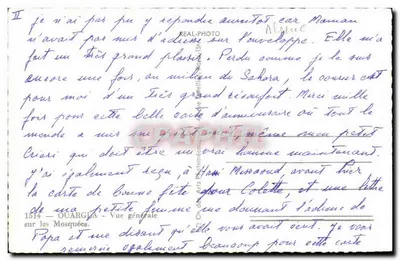 II
je n'ai pas pu y répondre aussitôt car Maman
n'avait pas mis d'adresse sur l'enveloppe. Elle m'a
REAL-PHOTO
fait un très grand plaisir. Perdu comme je le suis
encore une fois, au milieu du Sahara, le courrier est
pour moi d'un très grand réconfort. Merci mille
fois pour cette belle carte d'anniversaire où tout le
monde a mis même mon petit
qui doit être un vrai homme maintenant
j'ai également reçu, à Hassi Messaoud, avant hier
la carte de bonne fête pour Colette, et une lettre
1514 - OUARGLA - Vue générale
sur les Mosquées.
de ma petite femme me donnant l'adresse de
Papa et me disant qu'elle vous avait écrit. Je vous
remercie également beaucoup pour cette carte